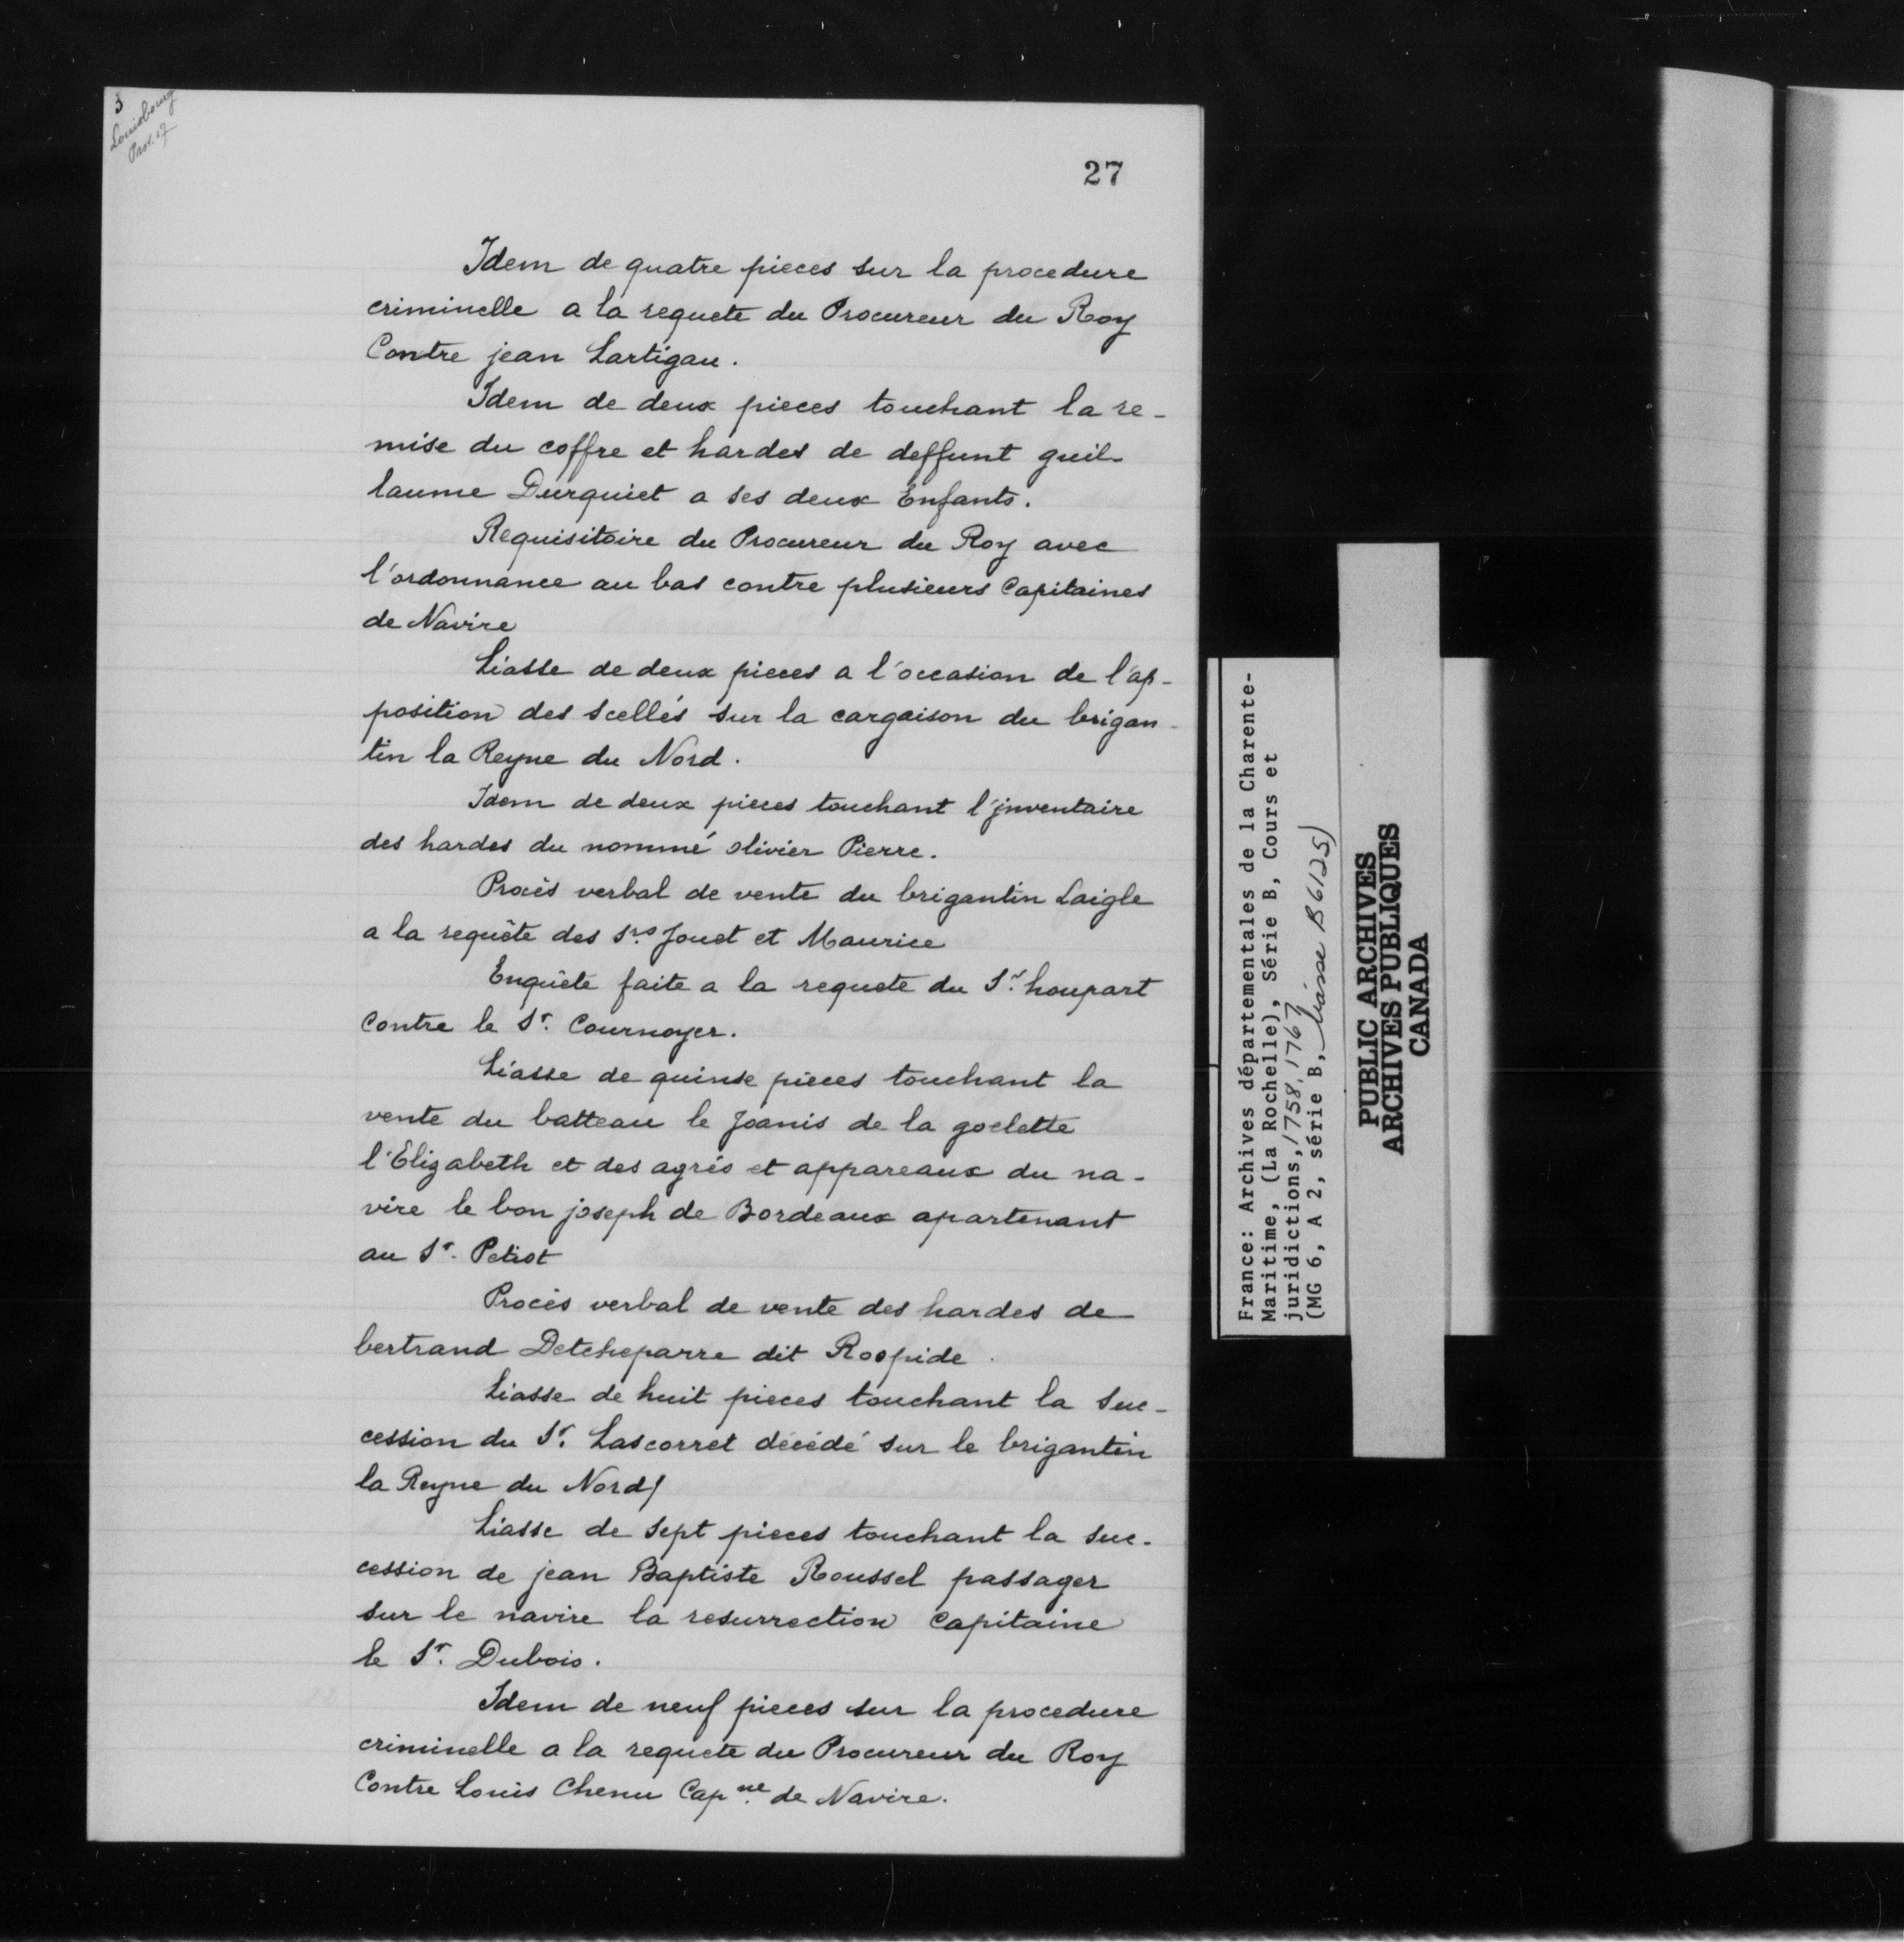 3
Louisbourg
27
Idem de quatre pieces sur la procedure
criminelle a la requete du Procureur du Roy
Contre jean Lartigau.
Idem de deux pieces touchant la re-
mise du coffre et hardes de deffunt guil-
laume Durquiet a ses deux Enfants.
Requisitoire du Procureur du Roy avec
l'ordonnance au bas contre plusieurs Capitaines
de Navire
Liasse de deux pieces a l'occasion de l'ap-
position des scellés sur la cargaison du brigan-
tin la Reyne du Nord.
Idem de deux pieces touchant l'jnventaire
des hardes du nommé olivier Pierre.
Procès verbal de vente du brigantin Laigle
a la requête des Srs Jouet et Maurice
Enquête faite a la requete du Sr. houpart
Contre le Sr. Cournoyer.
Liasse de quinse pieces touchant la
vente du batteau le Joanis de la goelette
l'Elizabeth et des agrés et appareaux du na-
vire le bon joseph de Bordeaux apartenant
au Sr. Petiot
Procès verbal de vente des hardes de
bertrand Detcheparre dit Rospide.
Liasse de huit pieces touchant la suc-
cession du Sr. Lascorret décédé sur le brigantin
la Reyne du Nord/
Liasse de sept pieces touchant la suc-
cession de jean Baptiste Roussel passager
sur le navire la resurrection Capitaine
le Sr. Dubois.
Idem de neuf pieces sur la procedure
criminelle a la requete du Procureur du Roy
Contre Louis Chenu Capne. de Navire.
France: Archives départementales de la Charente-
Maritime, (La Rochelle), Série B, Cours et
juridictions, 1758, 1767
(MG 6, A 2, série B, liasse B6125)
PUBLIC ARCHIVES
ARCHIVES PUBLIQUES
CANADA